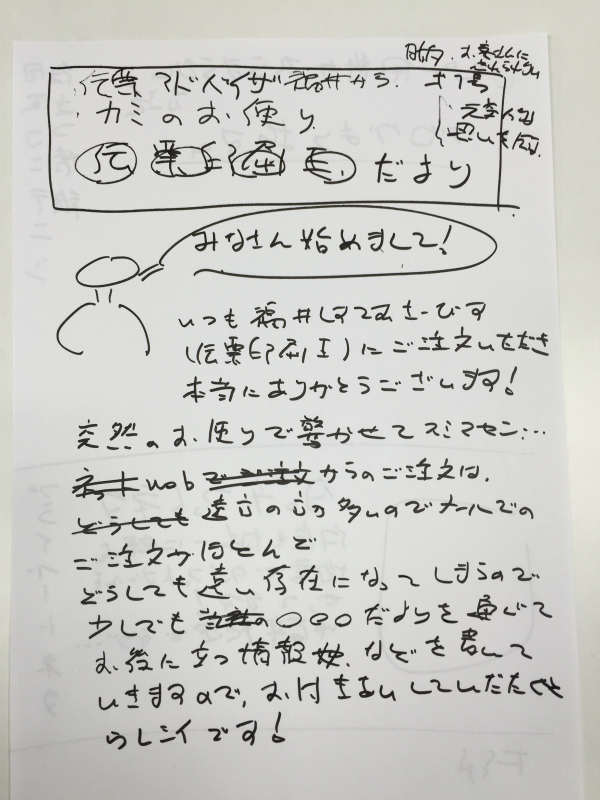 目的 お客さんに
忘れられない
伝票アドバイザ 福井から
カミのお便り
伝票印刷王 だより
思いを伝
みなさん始めまして!
いつも福井
(伝票印刷王)にご注文いただき
本当にありがとうございます!
突然のお便りで驚かせてスミマセン…
webでご注文からのご注文は、
どうしても遠方の方が多いのでメールでの
ご注文がほとんで
どうしても遠い存在になってしまうので
少しでも の○○○だよりを通じて
お役に立つ情報 などを書いて
いきますので、お付き合いしていただくと
ウレシイです!